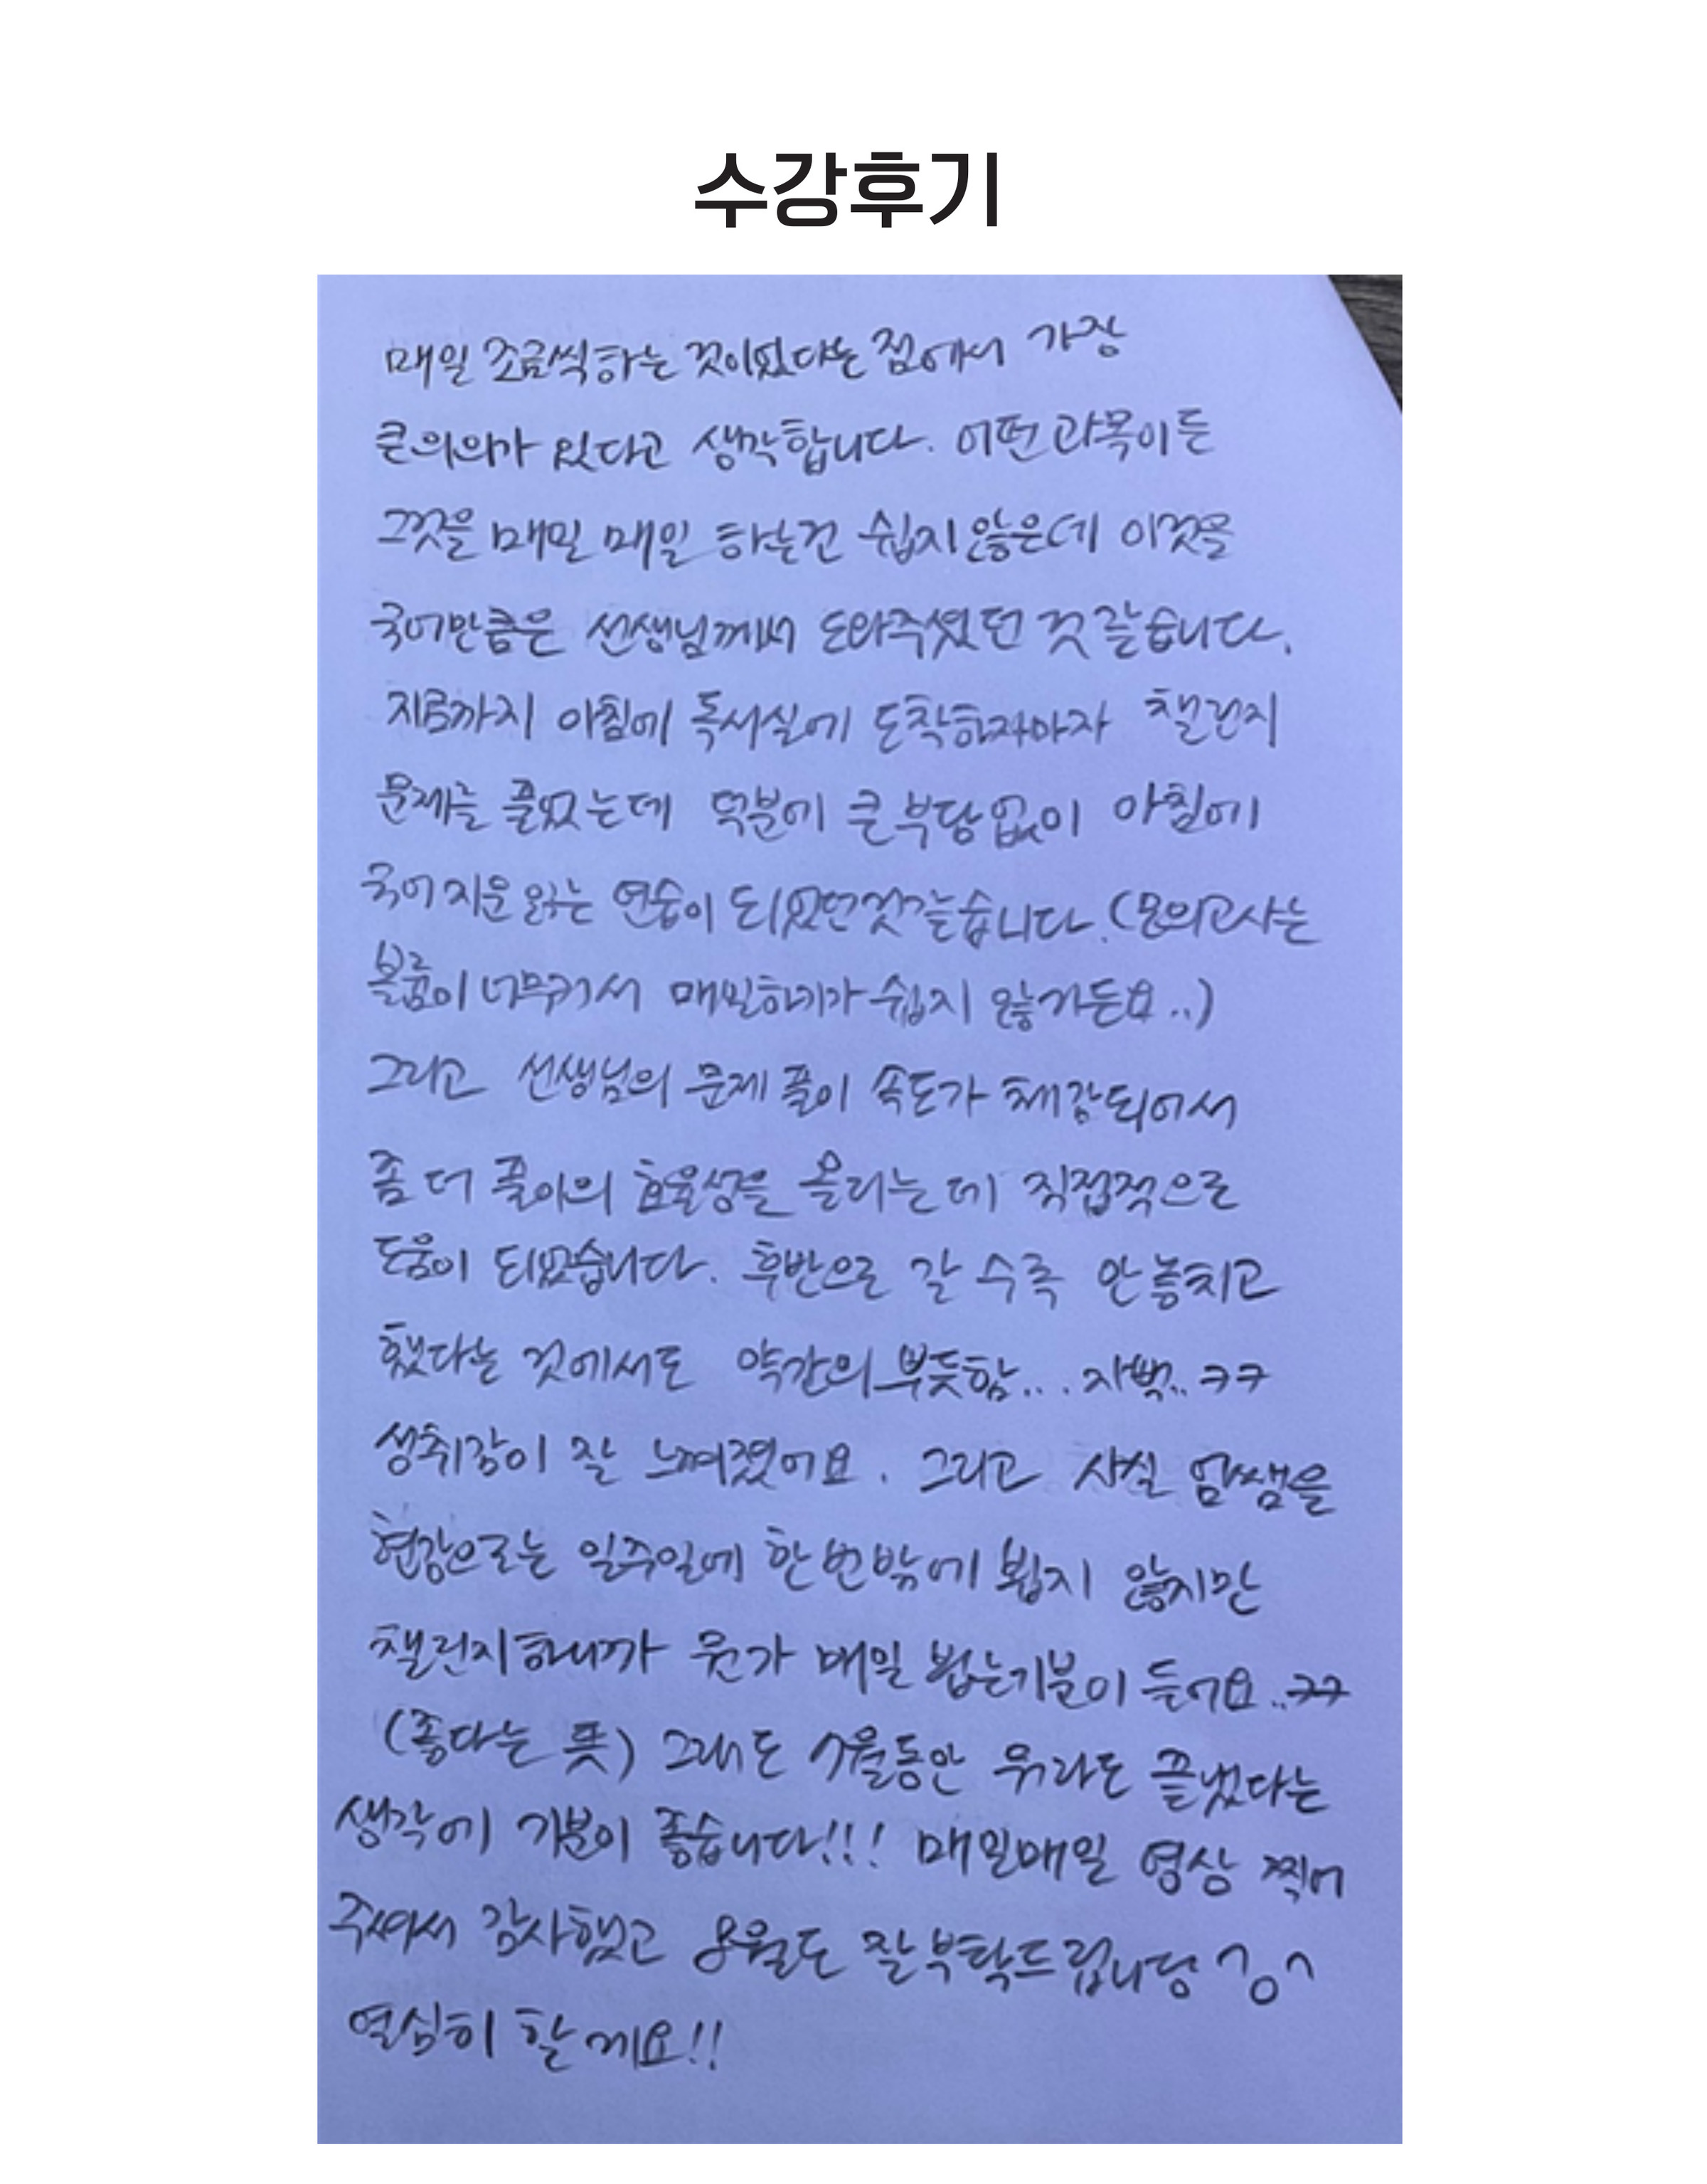 수강후기
매일 조금씩하는 것이었다는 점에서 가장
큰의의가 있다고 생각합니다. 어떤과목이든
그것을 매일 매일 하는건 쉽지않은데 이것을
국어만큼은 선생님께서 도와주셨던 것 같습니다.
지금까지 아침에 독서실에 도착하자마자 챌린지
문제를 풀었는데 덕분에 큰부담없이 아침에
국어지문 읽는 연습이 되었던것같습니다.(모의고사는
볼륨이 너무커서 매일하기가 쉽지 않거든요..)
그리고 선생님의 문제 풀이 속도가 체감되어서
좀 더 풀이의 효율성을 올리는데 직접적으로
도움이 되었습니다. 후반으로 갈 수록 안놓치고
했다는 것에서도 약간의 뿌듯함... 자뻑..ㅋㅋ
성취감이 잘 느껴졌어요. 그리고 사실 엄쌤을
현강으로는 일주일에 한번밖에 뵙지 않지만
챌린지하니까 뭔가 매일 뵙는기분이 들어요..ㅋㅋ
(좋다는 뜻) 그래도 7월동안 뭐라도 끝냈다는
생각에 기분이 좋습니다!!! 매일매일 영상 찍어
주셔서 감사했고 8월도 잘부탁드립니당 ^o^
열심히 할께요!!